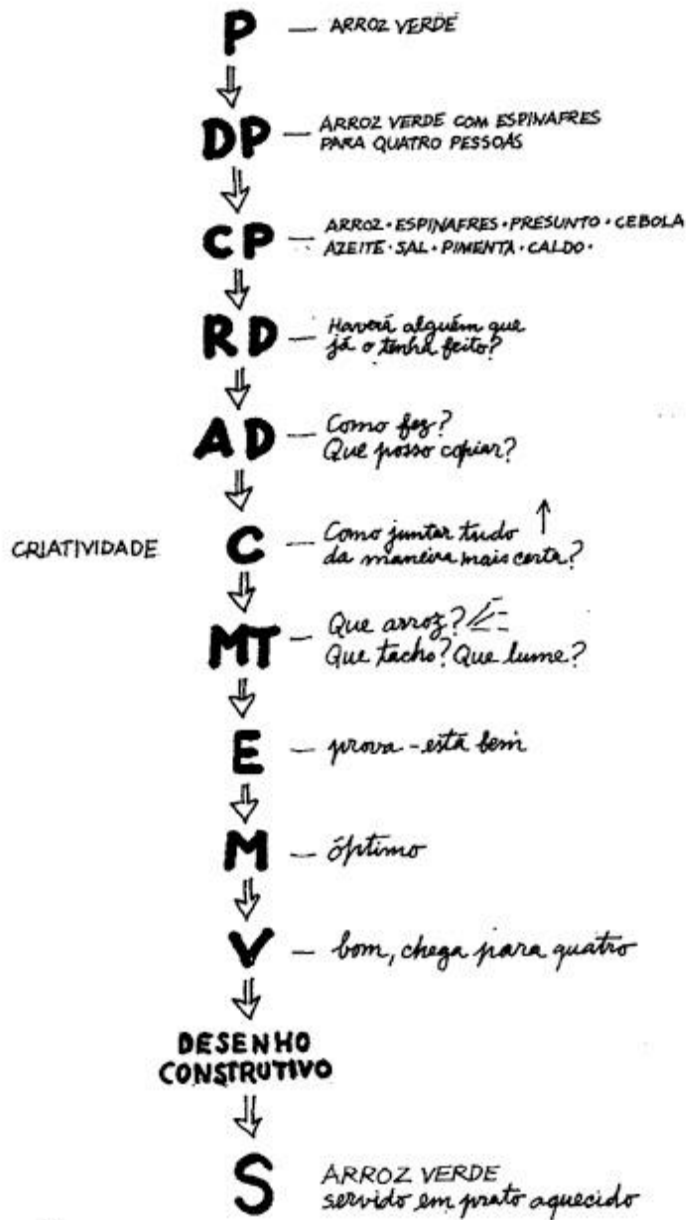 P — ARROZ VERDE
DP — ARROZ VERDE COM ESPINAFRES
PARA QUATRO PESSOAS
CP — ARROZ · ESPINAFRES · PRESUNTO · CEBOLA
AZEITE · SAL · PIMENTA · CALDO ·
RD — Haverá alguém que
já o tenha feito?
AD — Como fez?
Que posso copiar?
CRIATIVIDADE C — Como juntar tudo
da maneira mais certa?
MT — Que arroz?
Que tacho? Que lume?
E — prova - está bem
M — óptimo
V — bom, chega para quatro
DESENHO
CONSTRUTIVO
S ARROZ VERDE
servido em prato aquecido